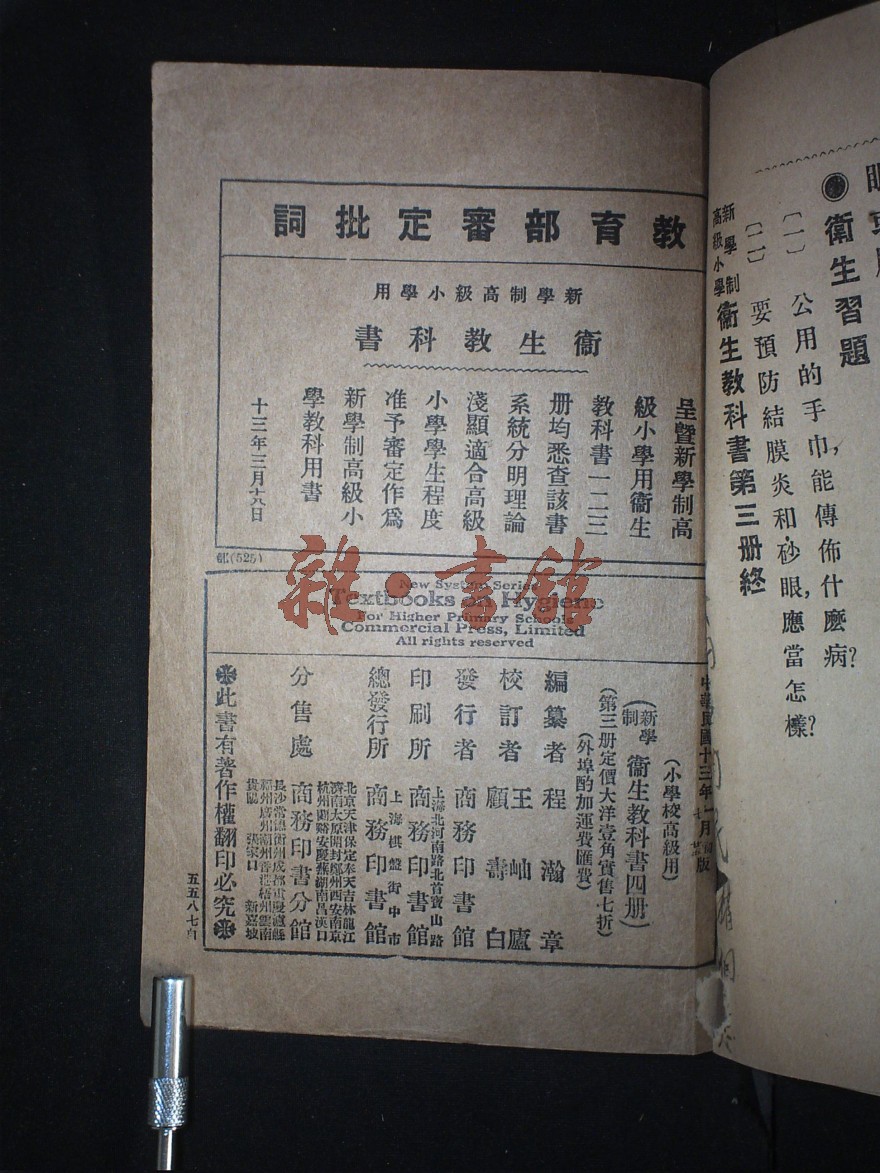 ●衛生習題
〔一〕 公用的手巾，能傳佈什麼病？
〔二〕 要預防結膜炎和砂眼，應當怎樣？
新學制高級小學衛生教科書第三册終
教育部審定批詞
新學制高級小學用
衛生教科書
呈暨新學制高
級小學用衛生
教科書一二三
册均悉查該書
系統分明理論
淺顯適合高級
小學學生程度
准予審定作爲
新學制高級小
學教科用書
十三年三月十八日
部(525)
New System Series
Textbooks on Hygiene
For Higher Primary Schools
Commercial Press, Limited
All rights reserved
中華民國十三年一月初版
(小學校高級用)
(新學制)衛生教科書四册)
(第三册定價大洋壹角實售七折)
(外埠酌加運費匯費)
編纂者 程瀚章
校訂者 王岫廬 顧壽白
發行者 商務印書館
印刷所 上海北河南路北首寶山路 商務印書館
總發行所 上海棋盤街中市 商務印書館
分售處 商務印書分館
北京天津保定奉天吉林龍江
濟南太原開封鄭州西安南京
杭州蘭谿安慶蕪湖南昌漢口
長沙常德衡州成都重慶瀘縣
福州廣州潮州香港梧州雲南
貴陽 張家口 新嘉坡
此書有著作權翻印必究
五五八七自
雜·書館